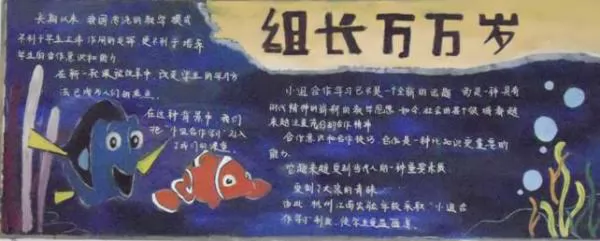 组长万万岁
长期以来，我国传统的教学模式
不利于学生主体作用的发挥，更不利于培养
学生的合作意识和能力
在新一轮课程改革中，改变学生的学习方
式已成为人们的焦点。
在这种背景中，我们
把"小组合作学习"引入
了我们的课堂。
小组合作学习已不是一个全新的话题，而是一种具有
时代精神的崭新的教学思想，如今，社会的各个领域都越
来越注重充分的合作精神
合作意识和合作技巧，它作为一种比知识更重要的
能力，
它越来越受到当代人的一种重要素质
受到了大家的青睐
由此，杭州江南实验学校采取"小组合
作学习"制度，使学生受益